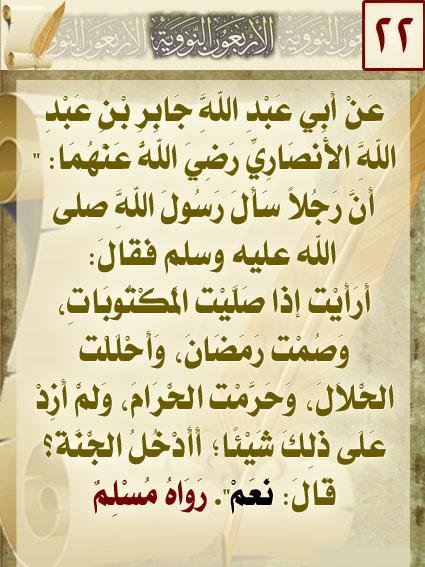 الأربعون النووية الأربعون النووية الأربعون النووية
٢٢
عَنْ أبي عَبْدِ اللهَِّ جَابِرِ بْنِ عَبْدِ
اللهَِّ الأنصاريِّ رَضيَ اللهُ عَنْهُمَا: "
أنَّ رجُلاً سألَ رَسُولَ اللهَِّ صلى
الله عليه وسلم فقالَ:
أرَأيْت إذا صَلَيْت المَكْتُوبَاتِ،
وَصُمْت رَمضانَ، وَأحْلَلْت
الحْلالَ، وَحَرَّمْت الحْرَامَ، وَلمْ أزِدْ
عَلَى ذلِكَ شَيْئًا؛ أأدْخُلُ الجْنَةَ؟
قالَ: نعَمْ". رَوَاهُ مُسْلِمٌ